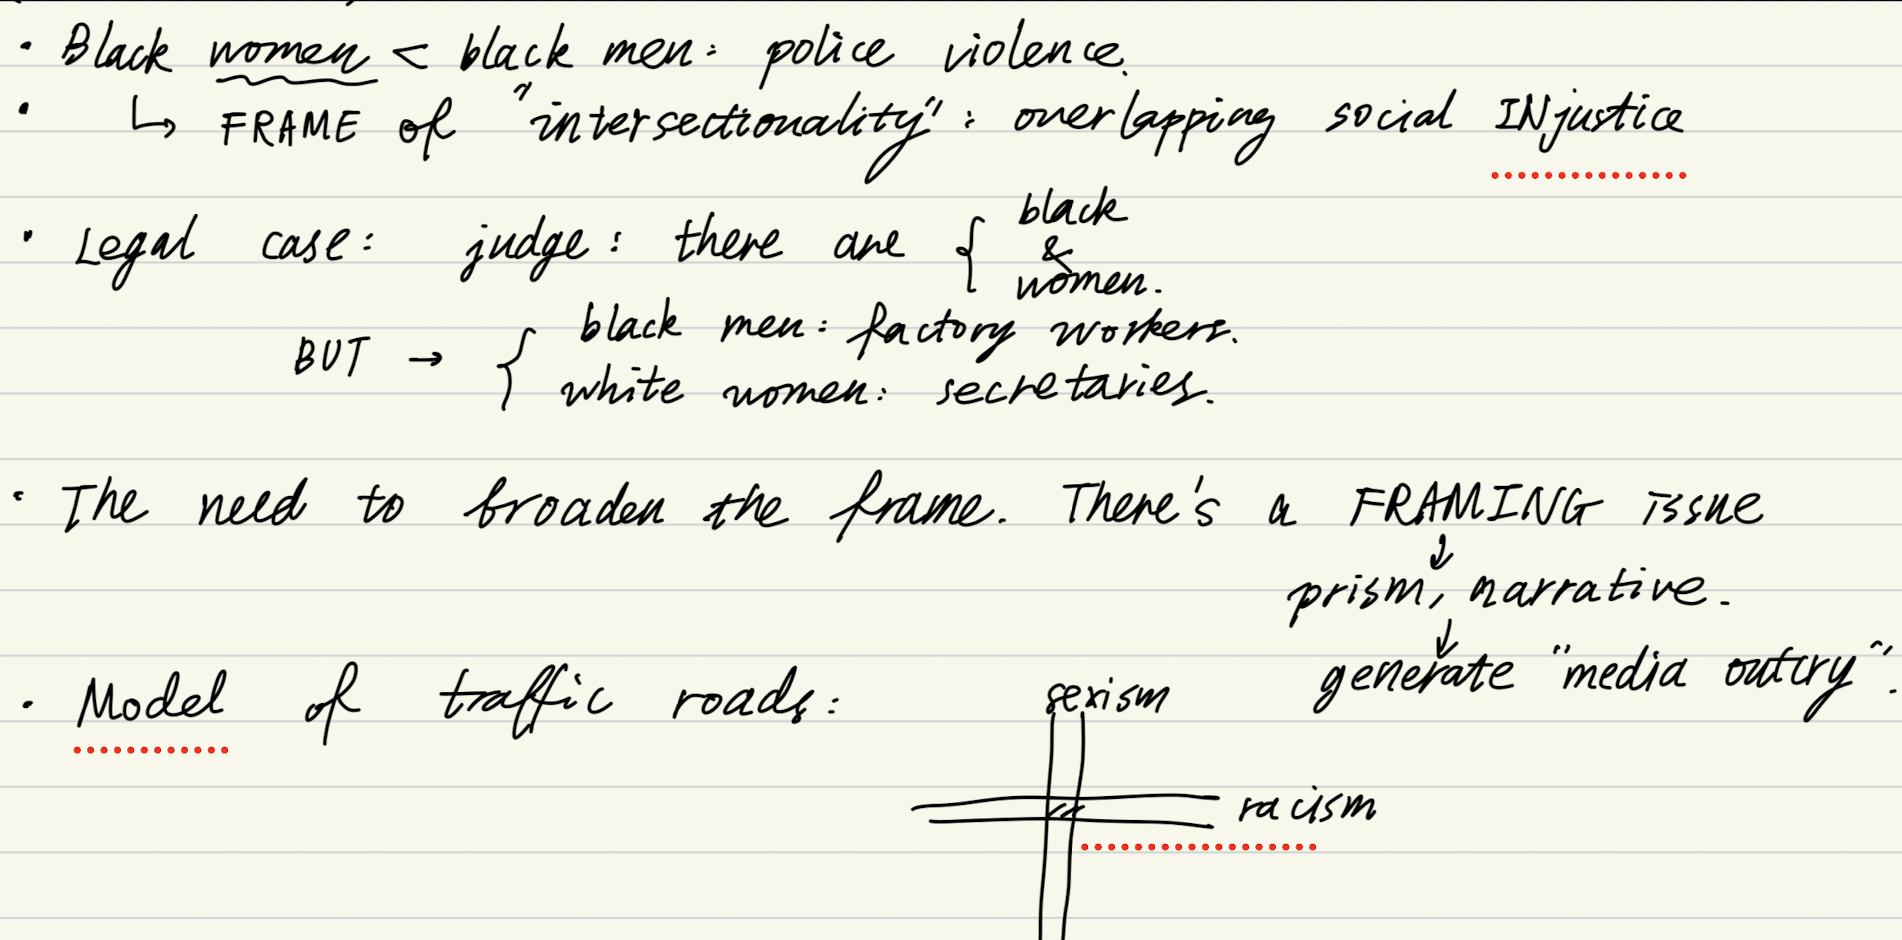 · Black women < black men: police violence.
· ↳ FRAME of "intersectionality": overlapping social INjustice
· Legal case: judge: there are { black
&
women.
BUT → { black men: factory workers.
white women: secretaries.
· The need to broaden the frame. There's a FRAMING issue
↓
prism, narrative.
↓
generate "media outcry".
· Model of traffic roads: sexism
racism